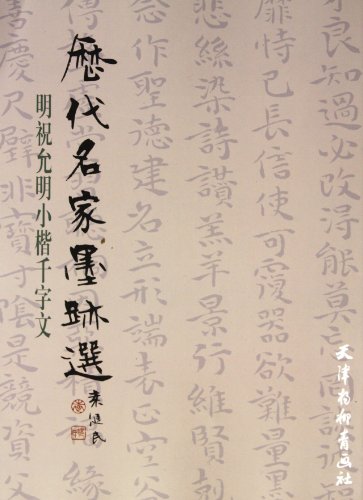 才良知過必改得能莫
靡恃己長信使可覆器欲難量
悲絲染詩讚羔羊景行維賢
念作聖德建名立形端表正空谷
歷代名家墨跡選
明祝允明小楷千字文
善慶尺璧非寶寸陰是競資父
天津杨柳青画社